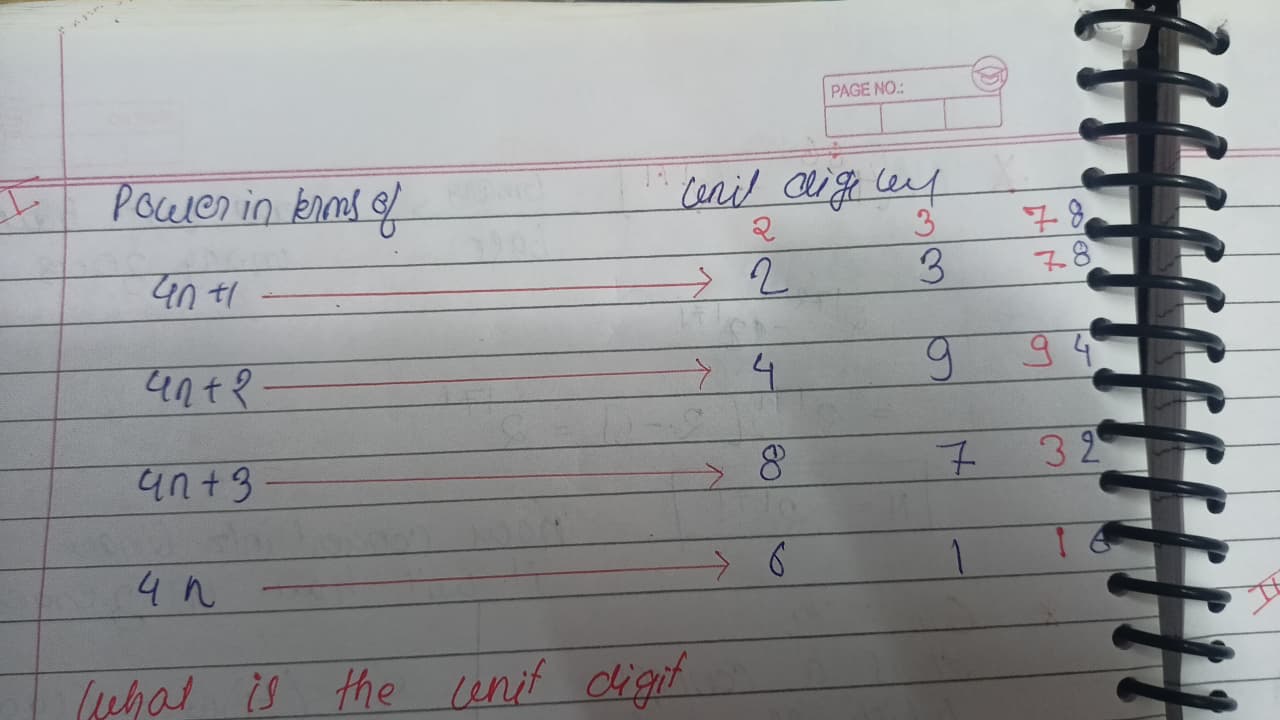 PAGE NO.:
I
Power in terms of unit digit
2 3 7 8
4n+1 → 2 3 7 8
4n+2 → 4 9 9 4
4n+3 → 8 7 3 2
4n → 6 1 1 6
II
What is the unit digit